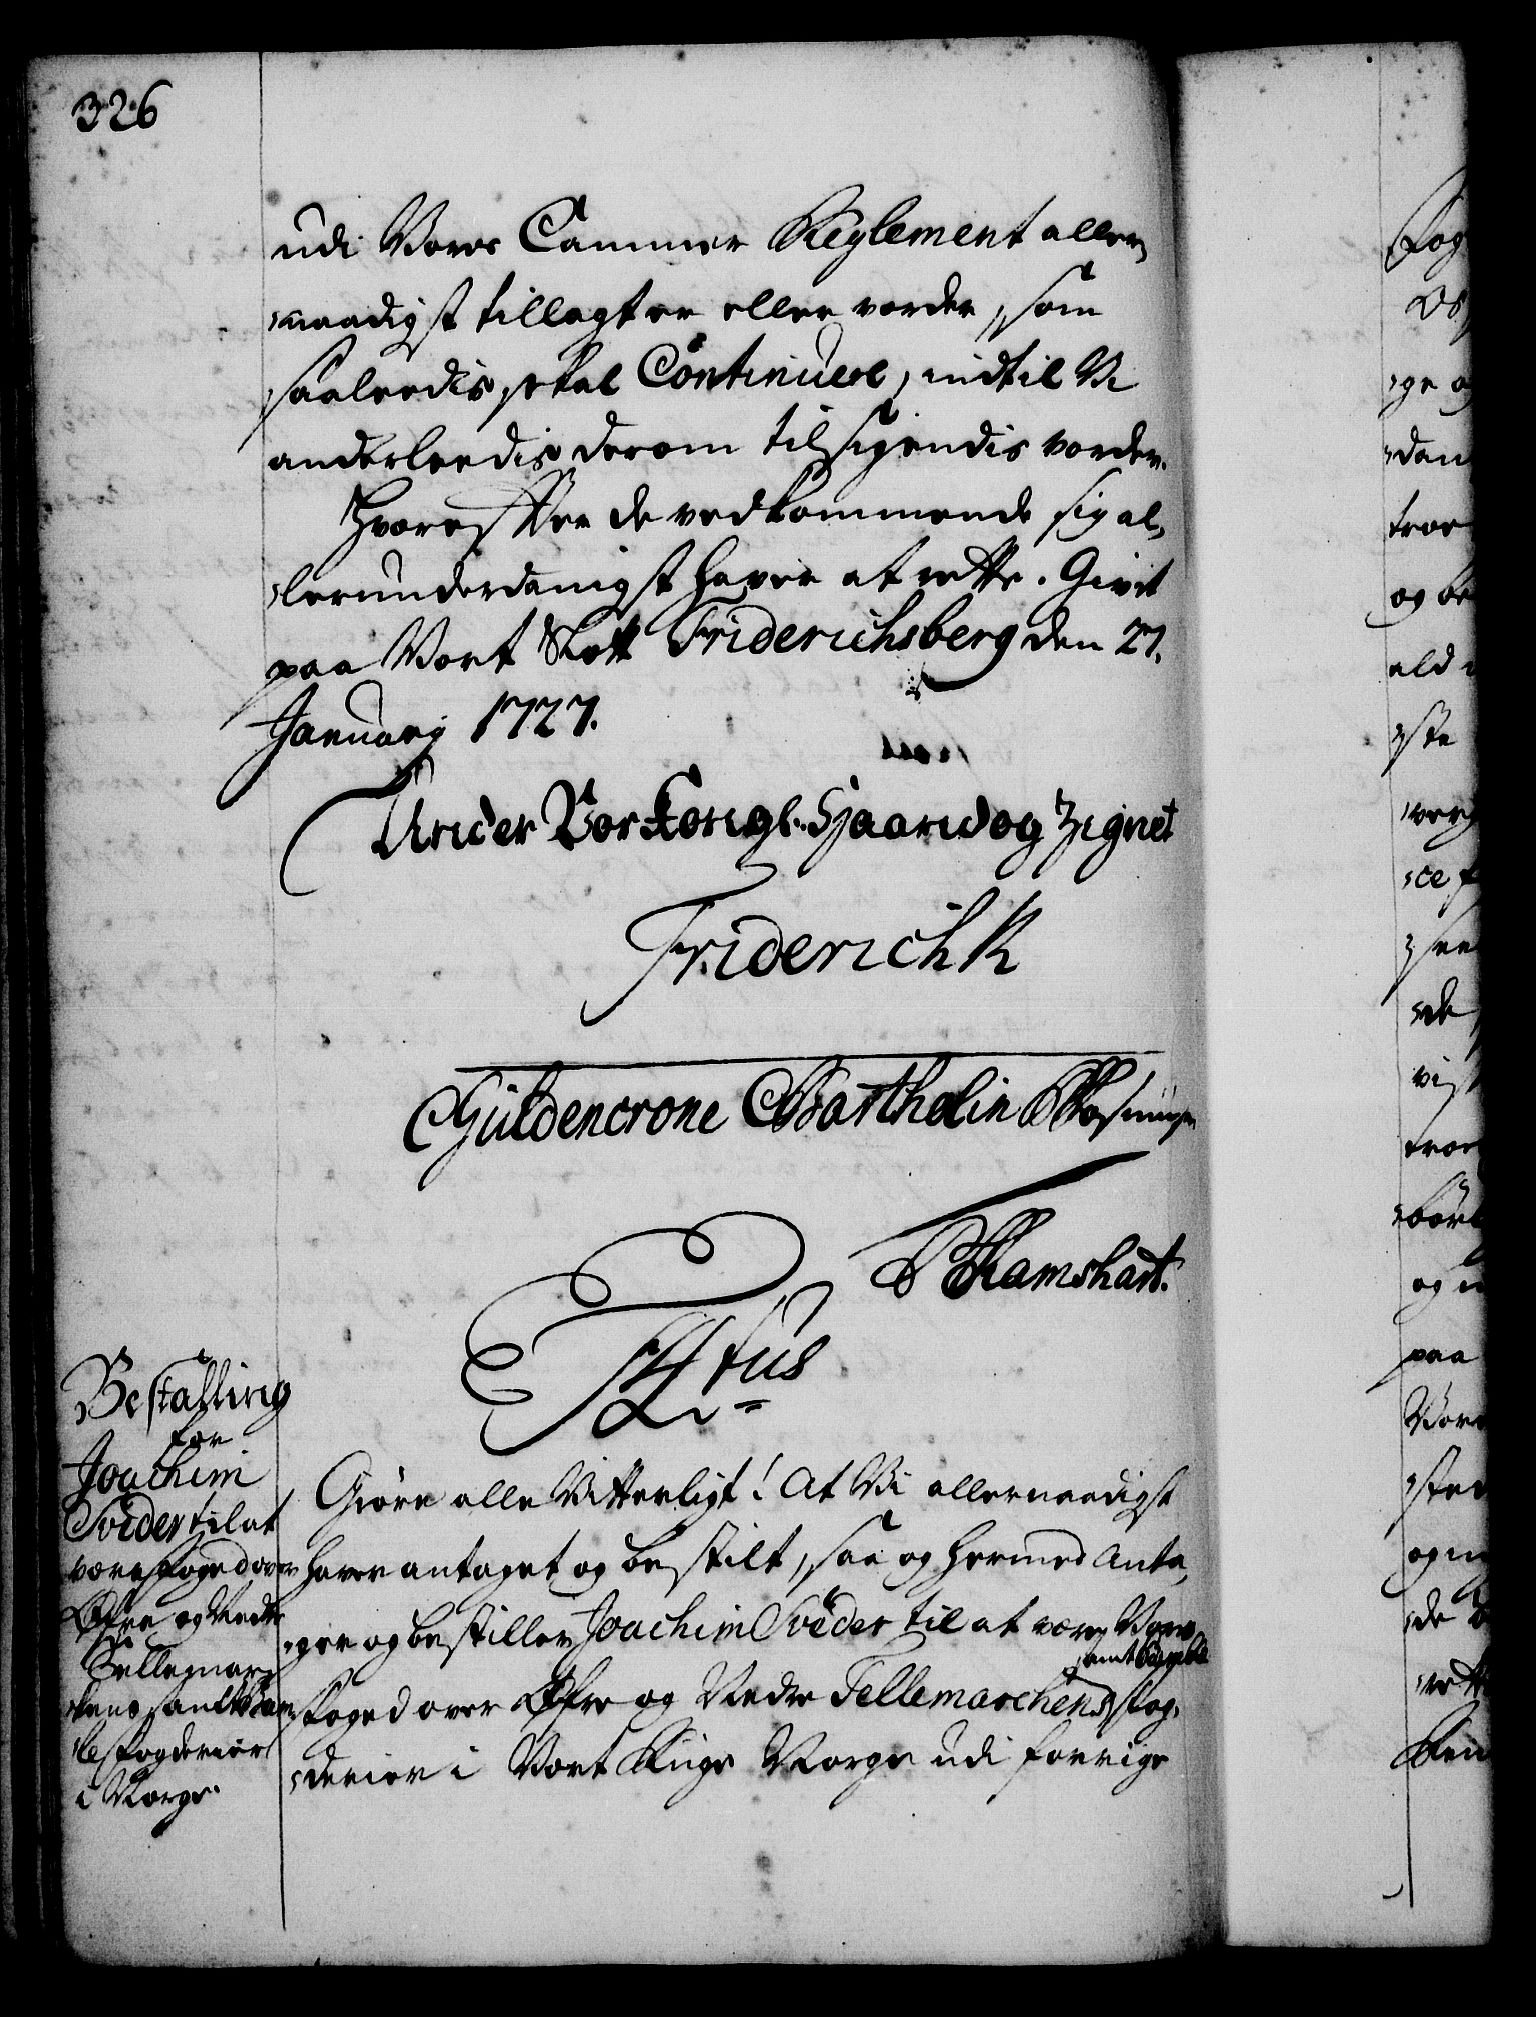 326
udi Vores Cammer Reglement aller-
naadigst tillagt er eller vorder, som
saaleedis skal Continuere, indtil Vi
anderleedis derom tilsigendis vorder.
Hvorefter de vedkommende sig al-
lerunderdanigst haver at rette. Givet
paa Vort Slott Friderichsberg den 27.
January 1727.
Under Vor Kongl. Haand og Zignet
Friderich R
Güldencrone C Bartholin
Ramshart.
F4tus
Bestalling
for
Joachim
Sveder til at
være foged over
Øfre og Nedre
Tellemar-
kens samt Bam-
le fogderier
i Norge
Giøre alle Vitterligt! At Vi allernaadigst
haver antaget og bestilt, saa og hermed Anta-
ger og bestiller Joachim Sveder til at være Vores
samt Bamble
foged over Øfre og Nedre Tellemarchens fog-
derier i Vort Rige Norge udi forrige